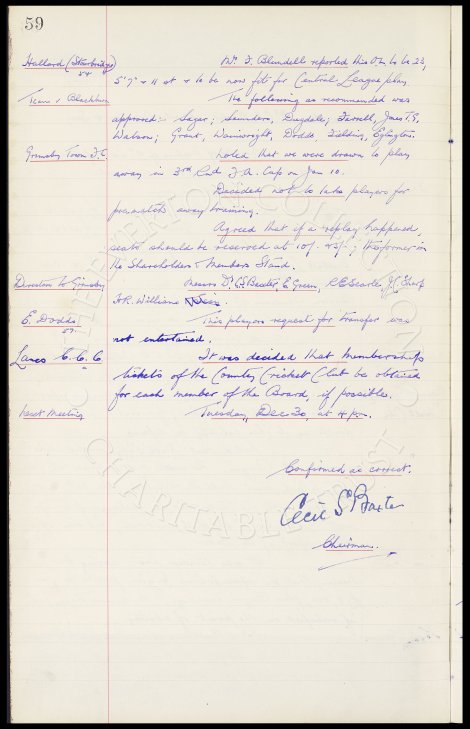 59
Hallard (Stourbridge) Mr. F. Blundell reported this O.L. to be 23,
54
5' 9" & 11 st & to be now fit for Central League play.
Team v Blackburn The following as recommended was
approved:- Sagar; Saunders, Dugdale; Farrell, Jones T.G,
Watson; Grant, Wainwright, Dodds, Fielding, Eglington.
Grimsby Town F.C. Noted that we were drawn to play
away in 3rd Rnd F.A. Cup on Jan 10.
Decided not to take players for
prematch away training.
Agreed that if a replay happened,
seats should be reserved at 10/- & 5/-; the former in
the Shareholders & Members Stand.
Directors to Grimsby Messrs Dr C.S. Baxter, E. Green, R.E. Searle, J.C. Sharp
& R. Williams
E. Dodds This players request for transfer was
57.
not entertained.
Lancs C.C.C. It was decided that Memberships
tickets of the County Cricket Club be obtained
for each member of the Board, if possible.
Next Meeting Tuesday, Dec 30, at 4 p.m.
Confirmed as correct.
Cecil S Baxter
Chairman.
THE EVERTON COLLECTION
CHARITABLE TRUST